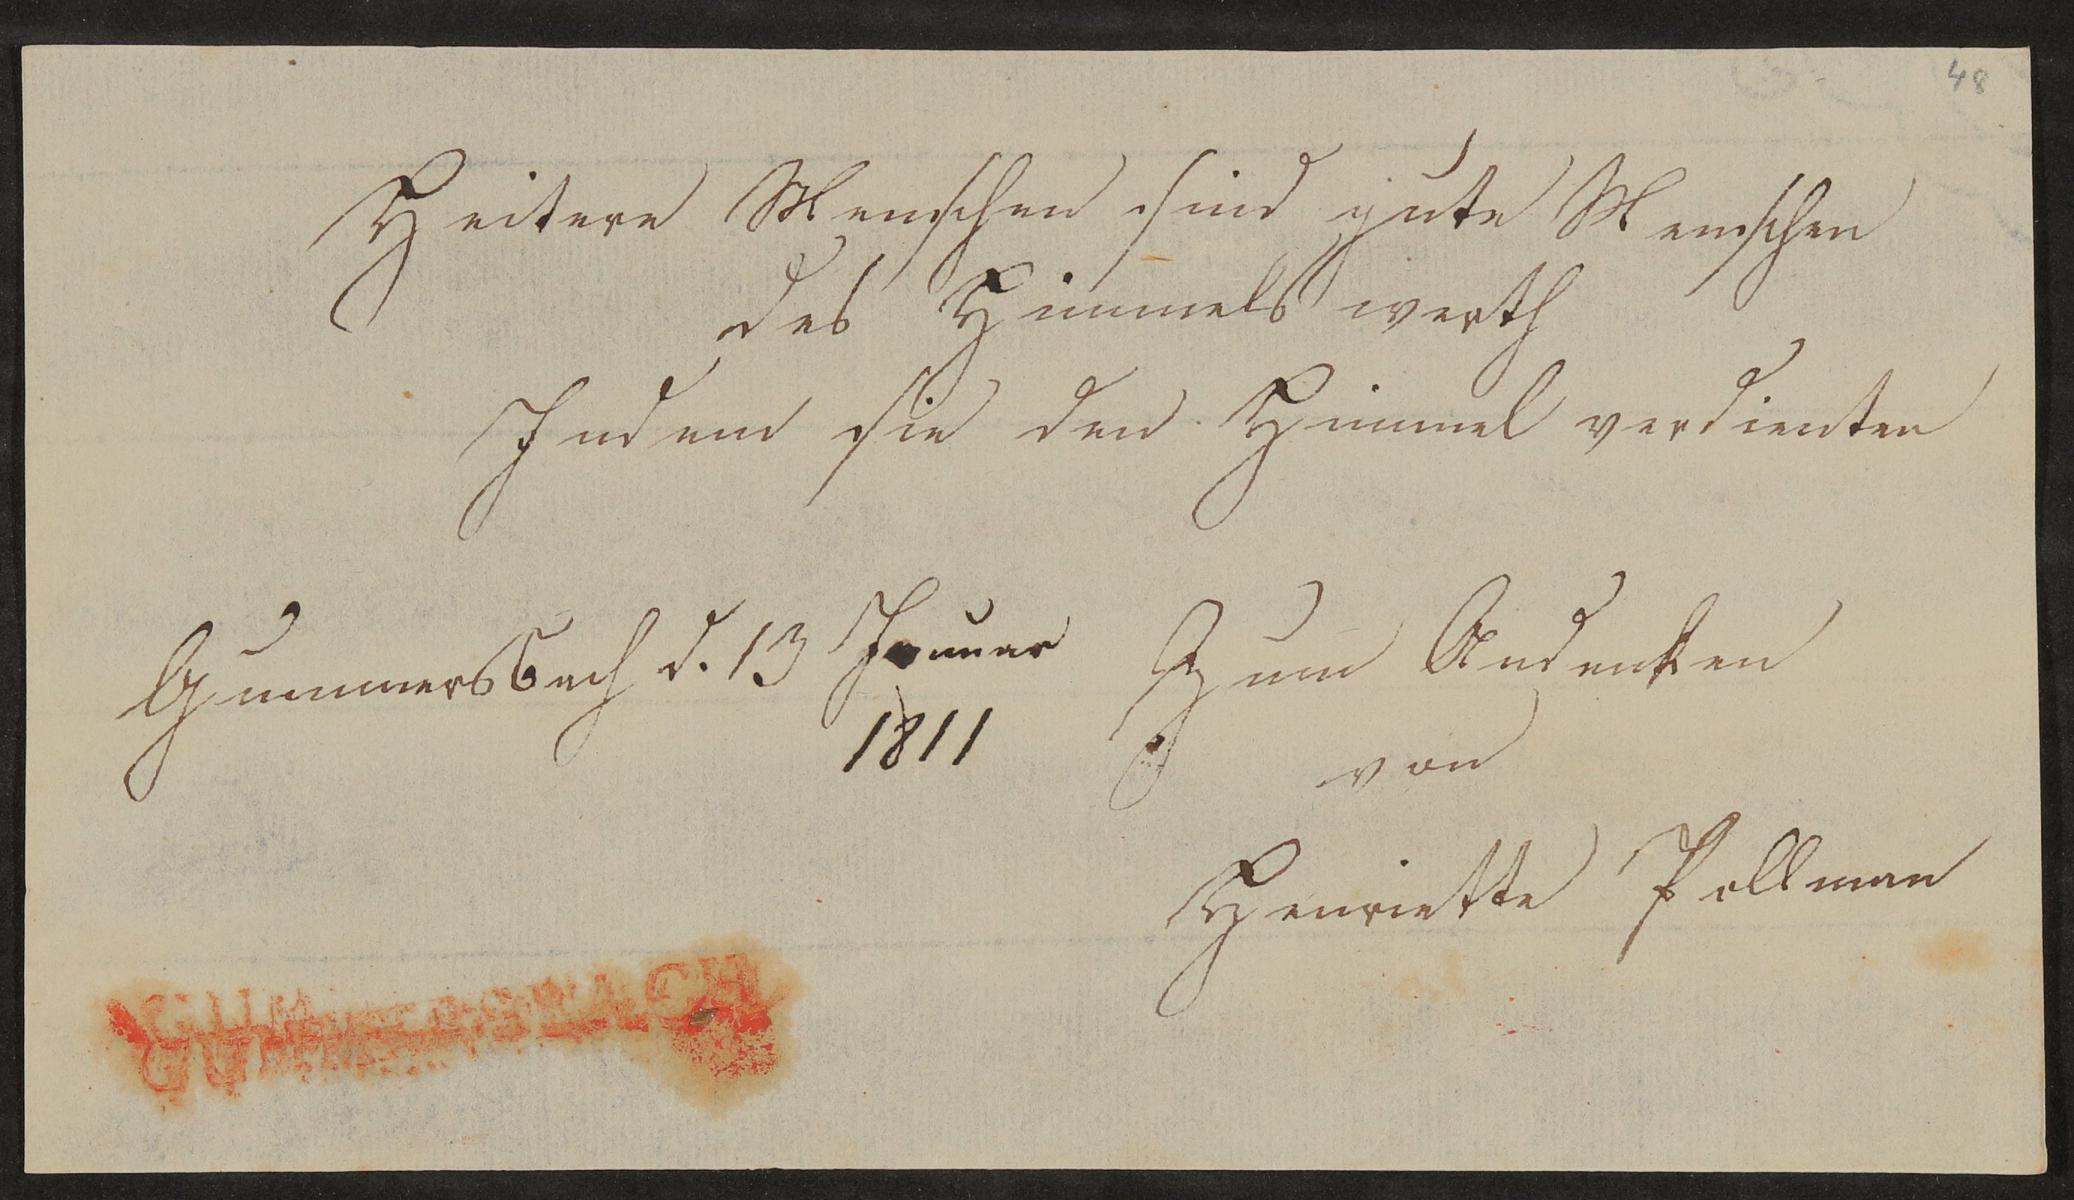 48
Heitere Menschen sind gute Menschen
des Himmels werth
Indem sie den Himmel verdienten
Gummersbach d. 13 Januar
1811
Zum Andenken
von
Henriette Pollman
GUMMERSBACH